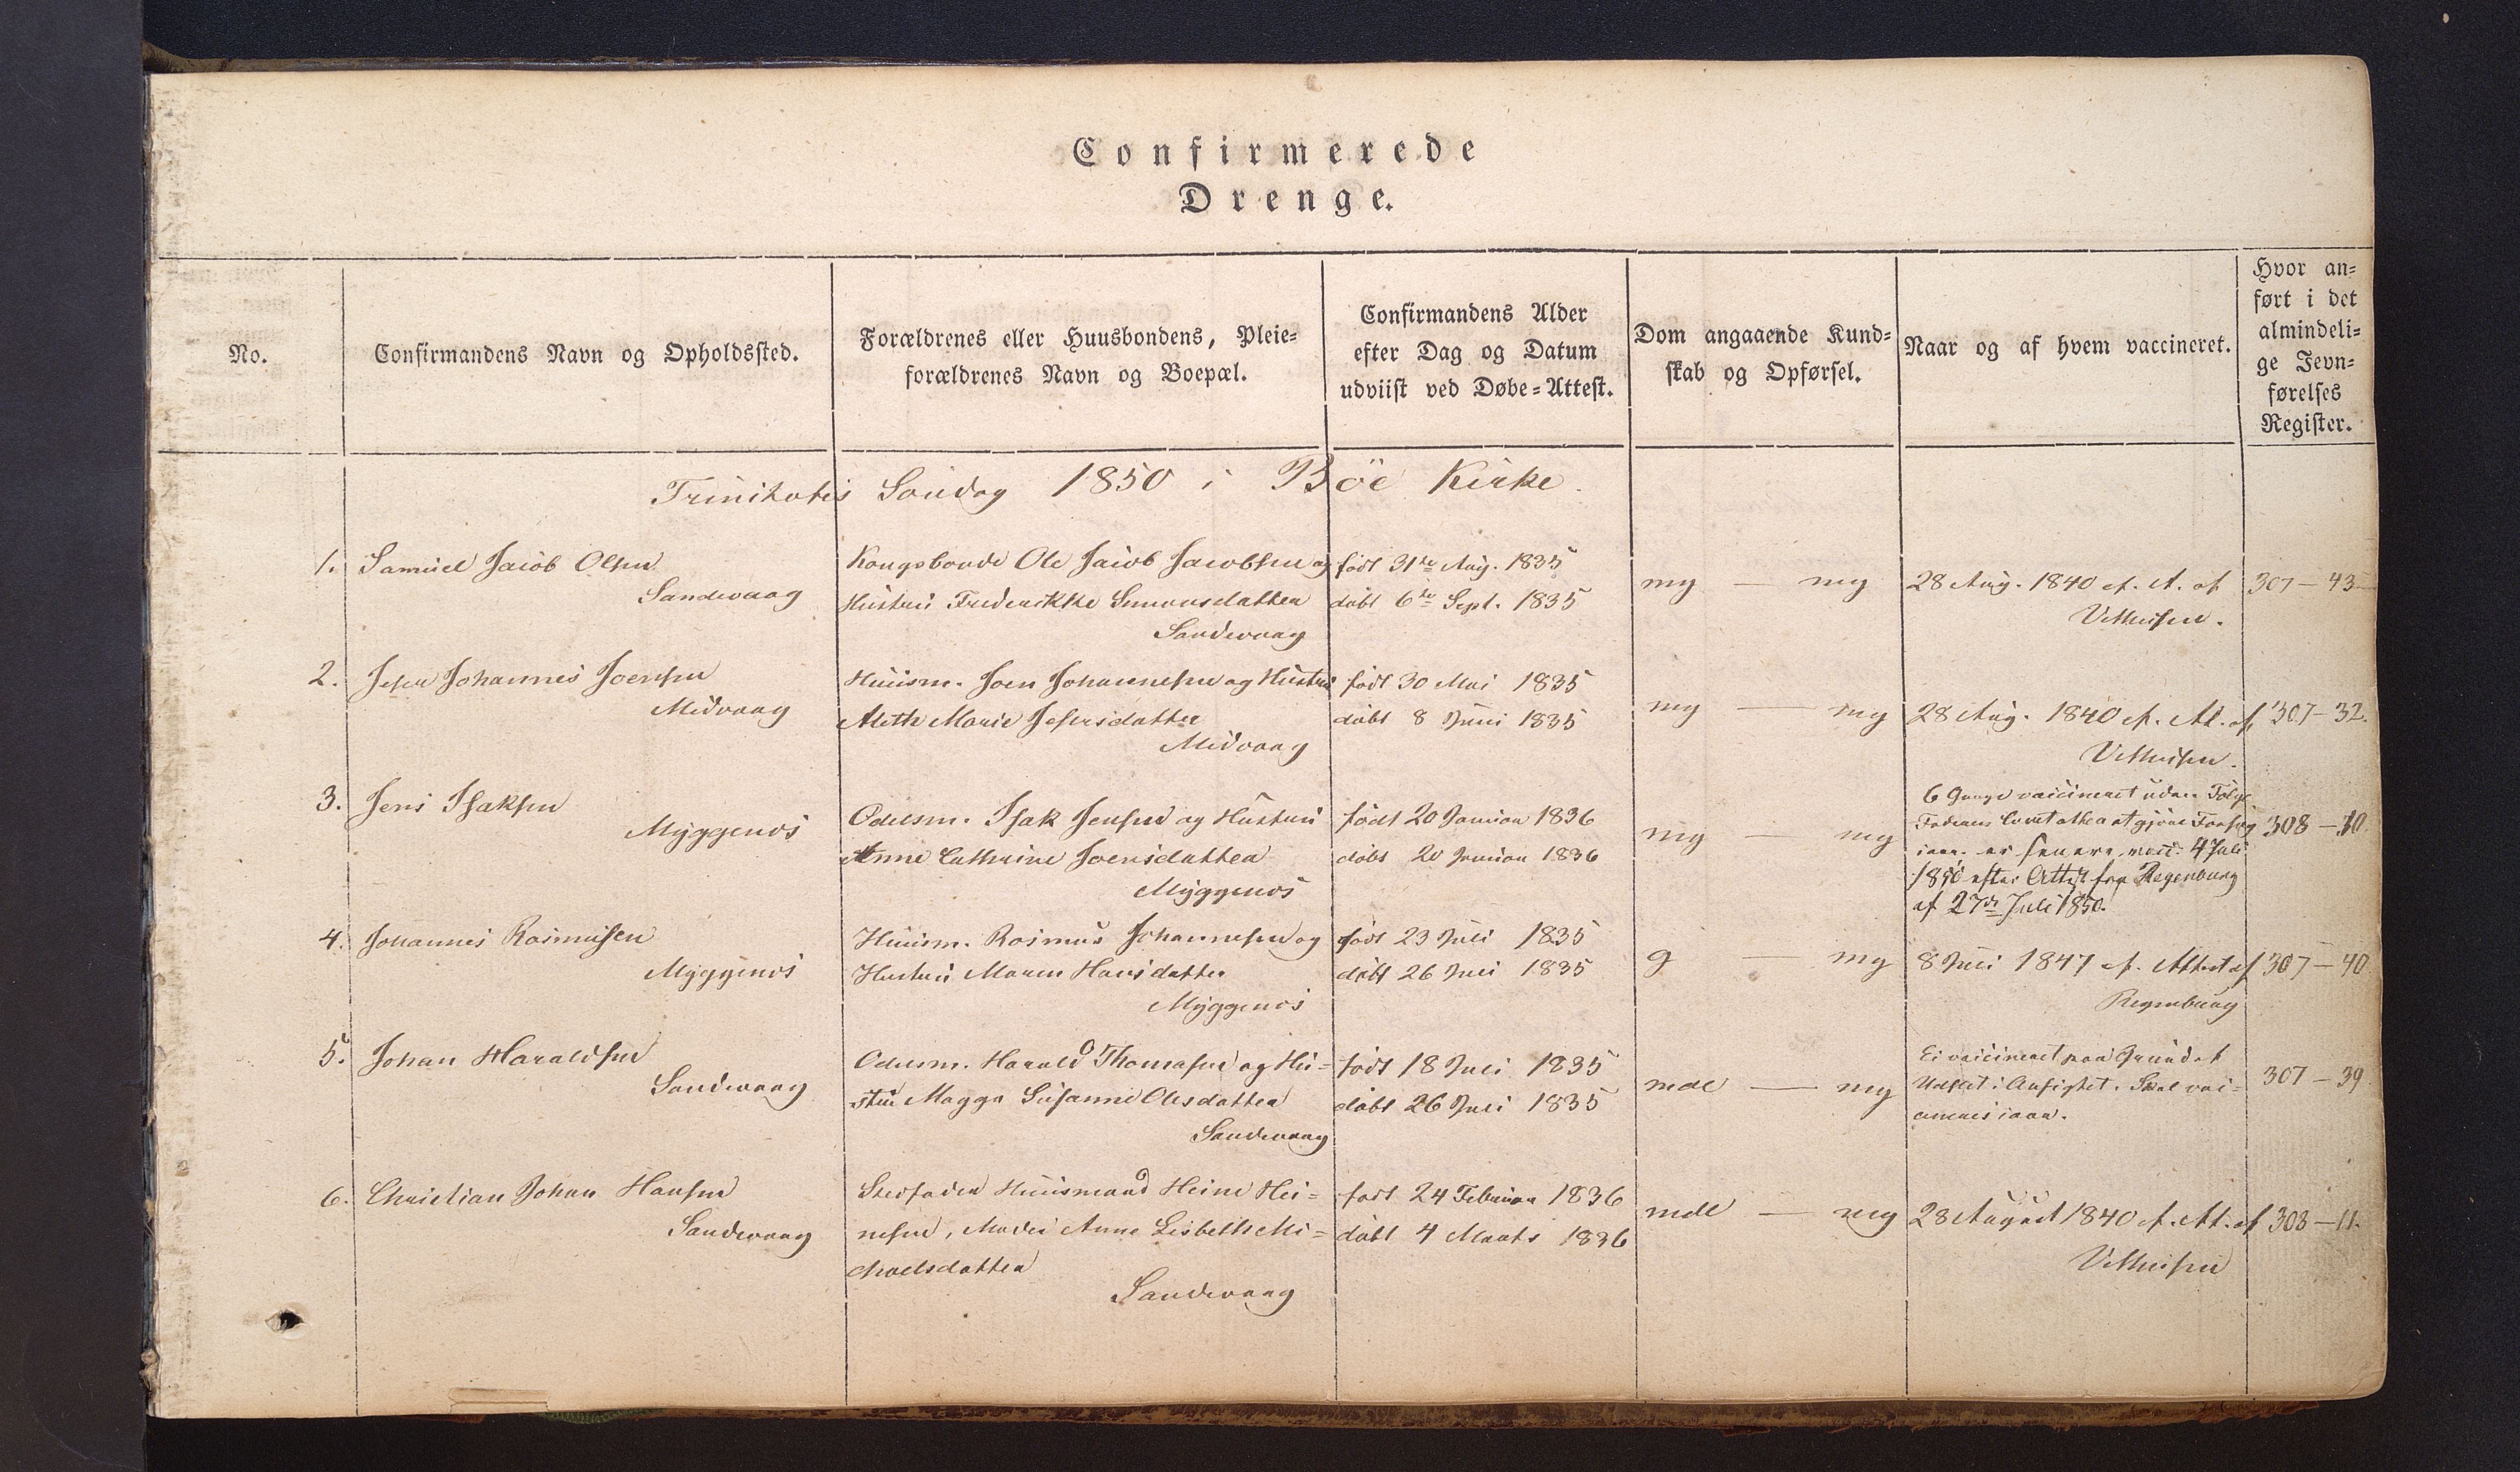 Confirmerede
Drenge.
No.
Confirmandens Navn og Opholdssted.
Forældrenes eller Huusbondens, Pleie-
forældrenes Navn og Boepæl.
Confirmandens Alder
efter Dag og Datum
udviist ved Døbe-Attest.
Dom angaaende Kund-
skab og Opførsel.
Naar og af hvem vaccineret.
Hvor an-
ført i det
almindeli-
ge Jevn-
førelses
Register.
Trinitatis Søndag 1850 i Böe Kirke.
1. Samuel Jacob Olsen
Sandevaag
Kongsbonde Ole Jacob Jacobsen og
Hustru Frederikke Simonsdatter
Sandevaag
født 31te Aug. 1835
døbt 6te Sept. 1835
mg — mg
28 Aug. 1840 ef. A. af
307 — 43
2. Johannes Joensen
Midvaag
Huusm. Joen Johannesen og Hustru
Aleth Marie Jespersdatter
Midvaag
født 30 Mai 1835
døbt 8 Juni 1835
mg — mg
28 Aug. 1840 ef. At. af
307 — 32.
3. Jens Isaksen
Myggenæs
Odelsm. Isak Jensen og Hustru
Anne Cathrine Joensdatter
Myggenæs
født 20 Januar 1836
døbt 20 Januar 1836
mg — mg
6 Gange vaccineret uden Følge
Faderen lovet atter at gjøre Forsøg
iaar. er senere vacc. 4 Juli
1850 efter Attest fra Regenburg
af 27de Juli 1850.
308 — 10.
4. Johannes Rasmussen
Myggenæs
Huusm. Rasmus Johannesen og
Hustru Maren Hansdatter
Myggenæs
født 23 Juli 1835
døbt 26 Juli 1835
g — mg
8 Juli 1847 ef. Attest af
Regenburg
307 — 40
5. Johan Haraldsen
Sandevaag
Odelsm. Harald Thomasen og Hu-
stru Magga Susanne Olesdatter
Sandevaag
født 18 Juli 1835
døbt 26 Juli 1835
mdl — mg
Ei vaccineret paa Grund af
Udslet i Ansigtet. Skal vac-
cineres iaar.
307 — 39
6. Christian Johan Hansen
Sandevaag
Stedfader Huusmand Heine Hei-
nesen, Moder Anne Lisbeth Mi-
chaelsdatter
Sandevaag
født 24 Februar 1836
døbt 4 Marts 1836
mdl — mg
28 August 1840 ef. At. af
308 — 11.